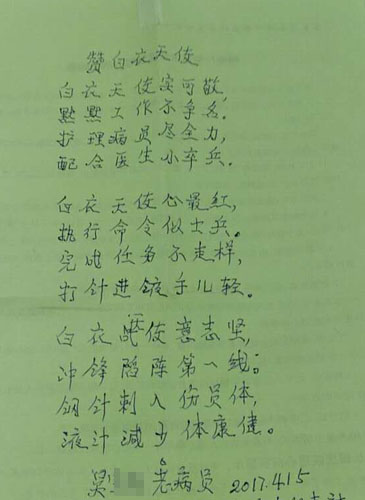 赞白衣天使
白衣天使实可敬,
默默工作不争名。
护理病员尽全力,
配合医生小卒兵。
白衣天使心最红,
执行命令似士兵。
完成任务不走样,
打针进液手儿轻。
白衣天使意志坚,
冲锋陷阵第一线。
钢针刺入伤员体,
液汁减少体康健。
吴 老病员 2017.4.15